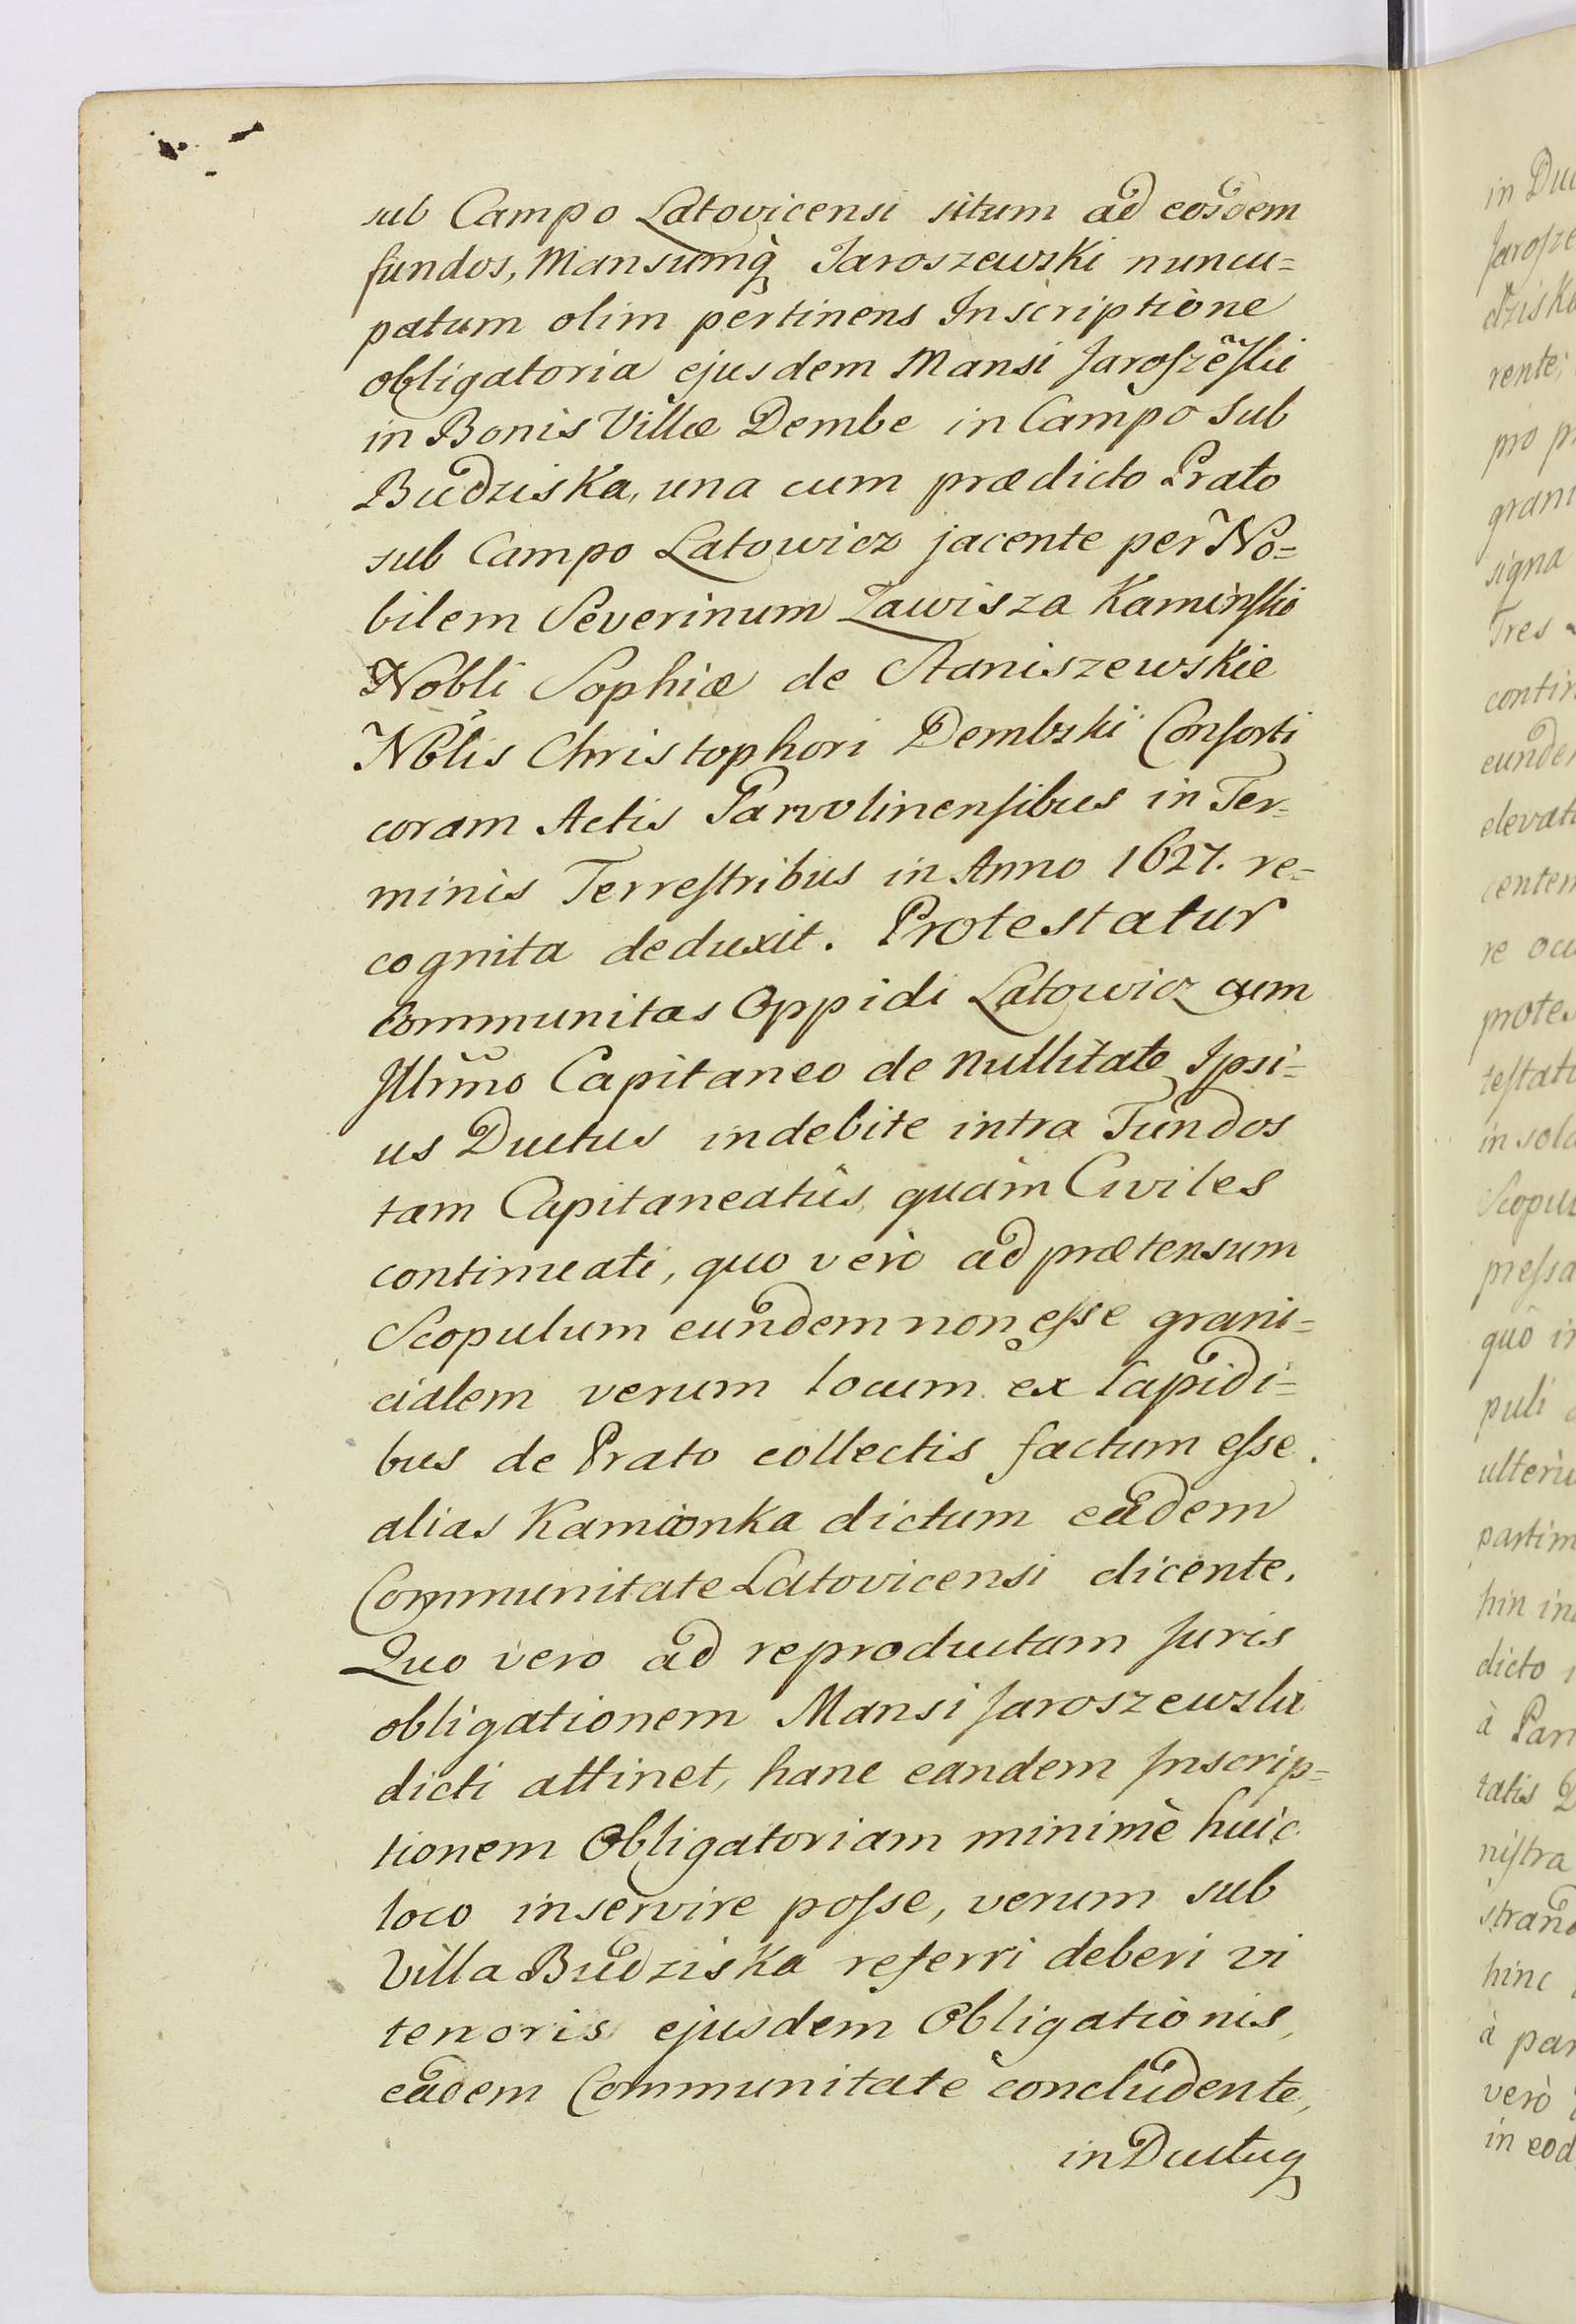 sub Campo Latovicensi situm ad eosdem
fundos, Mansumq̀ Jaroszewski nuncu=
patum olim pertinens Inscriptione
obligatoria ejusdem Mansi Jaroszeskie
in Bonis Villæ Dembe in Campo Sub
Budziska, una cum prædicto Prato
sub Campo Latowicz jacente per No=
bilem Severinum Zawisza Kaminskio
Nobli Sophiæ de Staniszewskie
Nblis Christophori Dembski Consorti
coram Actis Parvolinensibus in Ter=
minis Terrestribus in Anno 1627. re=
cognita deduxit. Protestatur
Communitas Oppidi Latowicz cum
Jllrmo Capitaneo de nullitate Ipsi=
us Ductus indebite intra Fundos
tam Capitaneatûs, quàm Civiles
continuati, quo verò ad prætensum
Scopulum eundem non esse grani=
cialem verum locum ex lapidi=
bus de Prato collectis factum esse.
alias Kamionka dictum eâdem
Communitate Latovicensi dicente.
Quo vero ad reproductam Juris
obligationem Mansi Jaroszewskie
dicti attinet, hanc eandem Inscrip=
tionem Obligatoriam minimè huic
loco inservire posse, verum sub
Villa Budziska referri deberi vi
tenoris ejusdem Obligationis,
eâdem Communitate concludente,
in Ductuq

in Duc
Jarosze
dziska
rente;
pro p
grani
signa
Tres
contin
eunde
elevat
centem
re ocu
protes
testat
in sol
Scopul
pressa
quô in
puli
ulteriu
partim
hin in
dicto
à Par
tatis D
nistra
strand
hinc
à par
verò
in eod